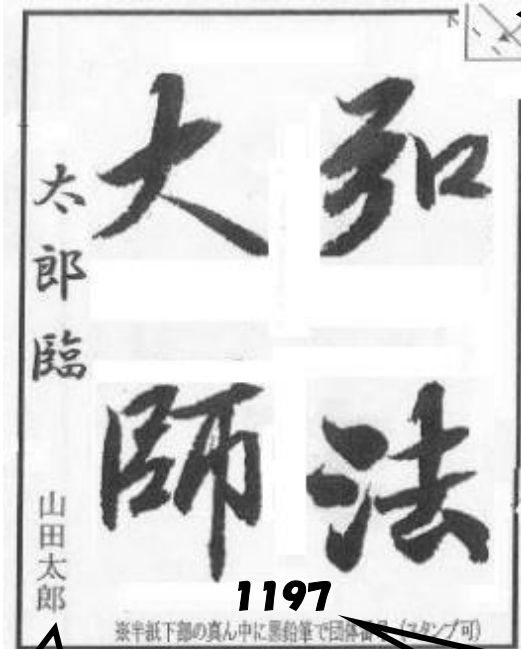 弘法
大師
太郎臨
山田太郎
1197
※半紙下部の真ん中に黒鉛筆で団体番号(スタンプ可)